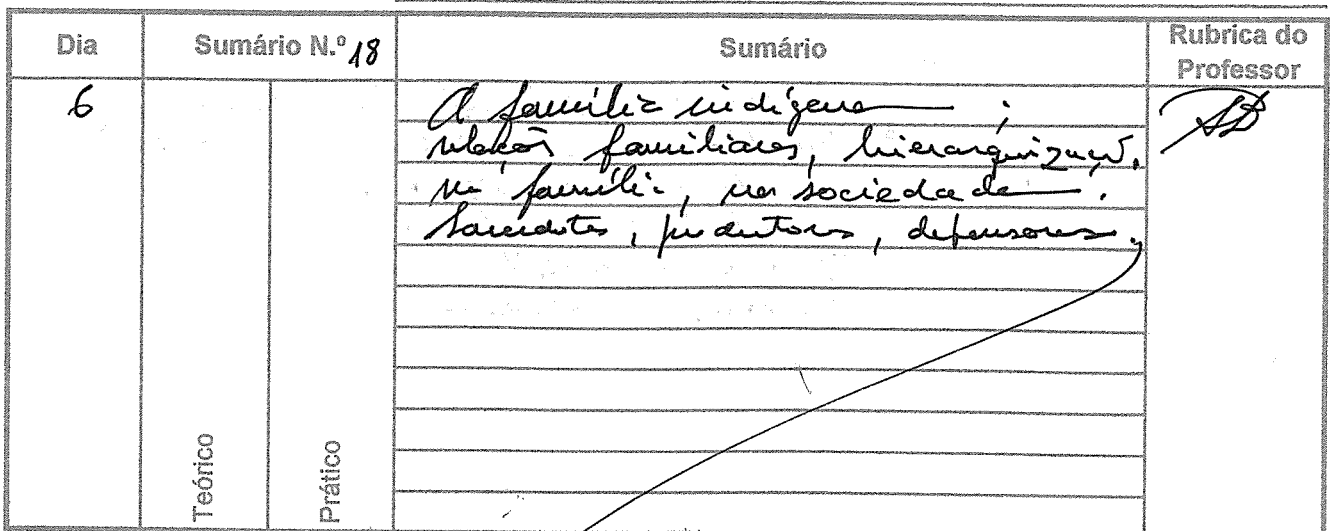 Dia
Sumário N.º 18
Sumário
Rubrica do
Professor
6
A família indígena ;
relações familiares, hierarquização,
na família, na sociedade.
Sacerdotes, produtores, defensores.
Teórico
Prático